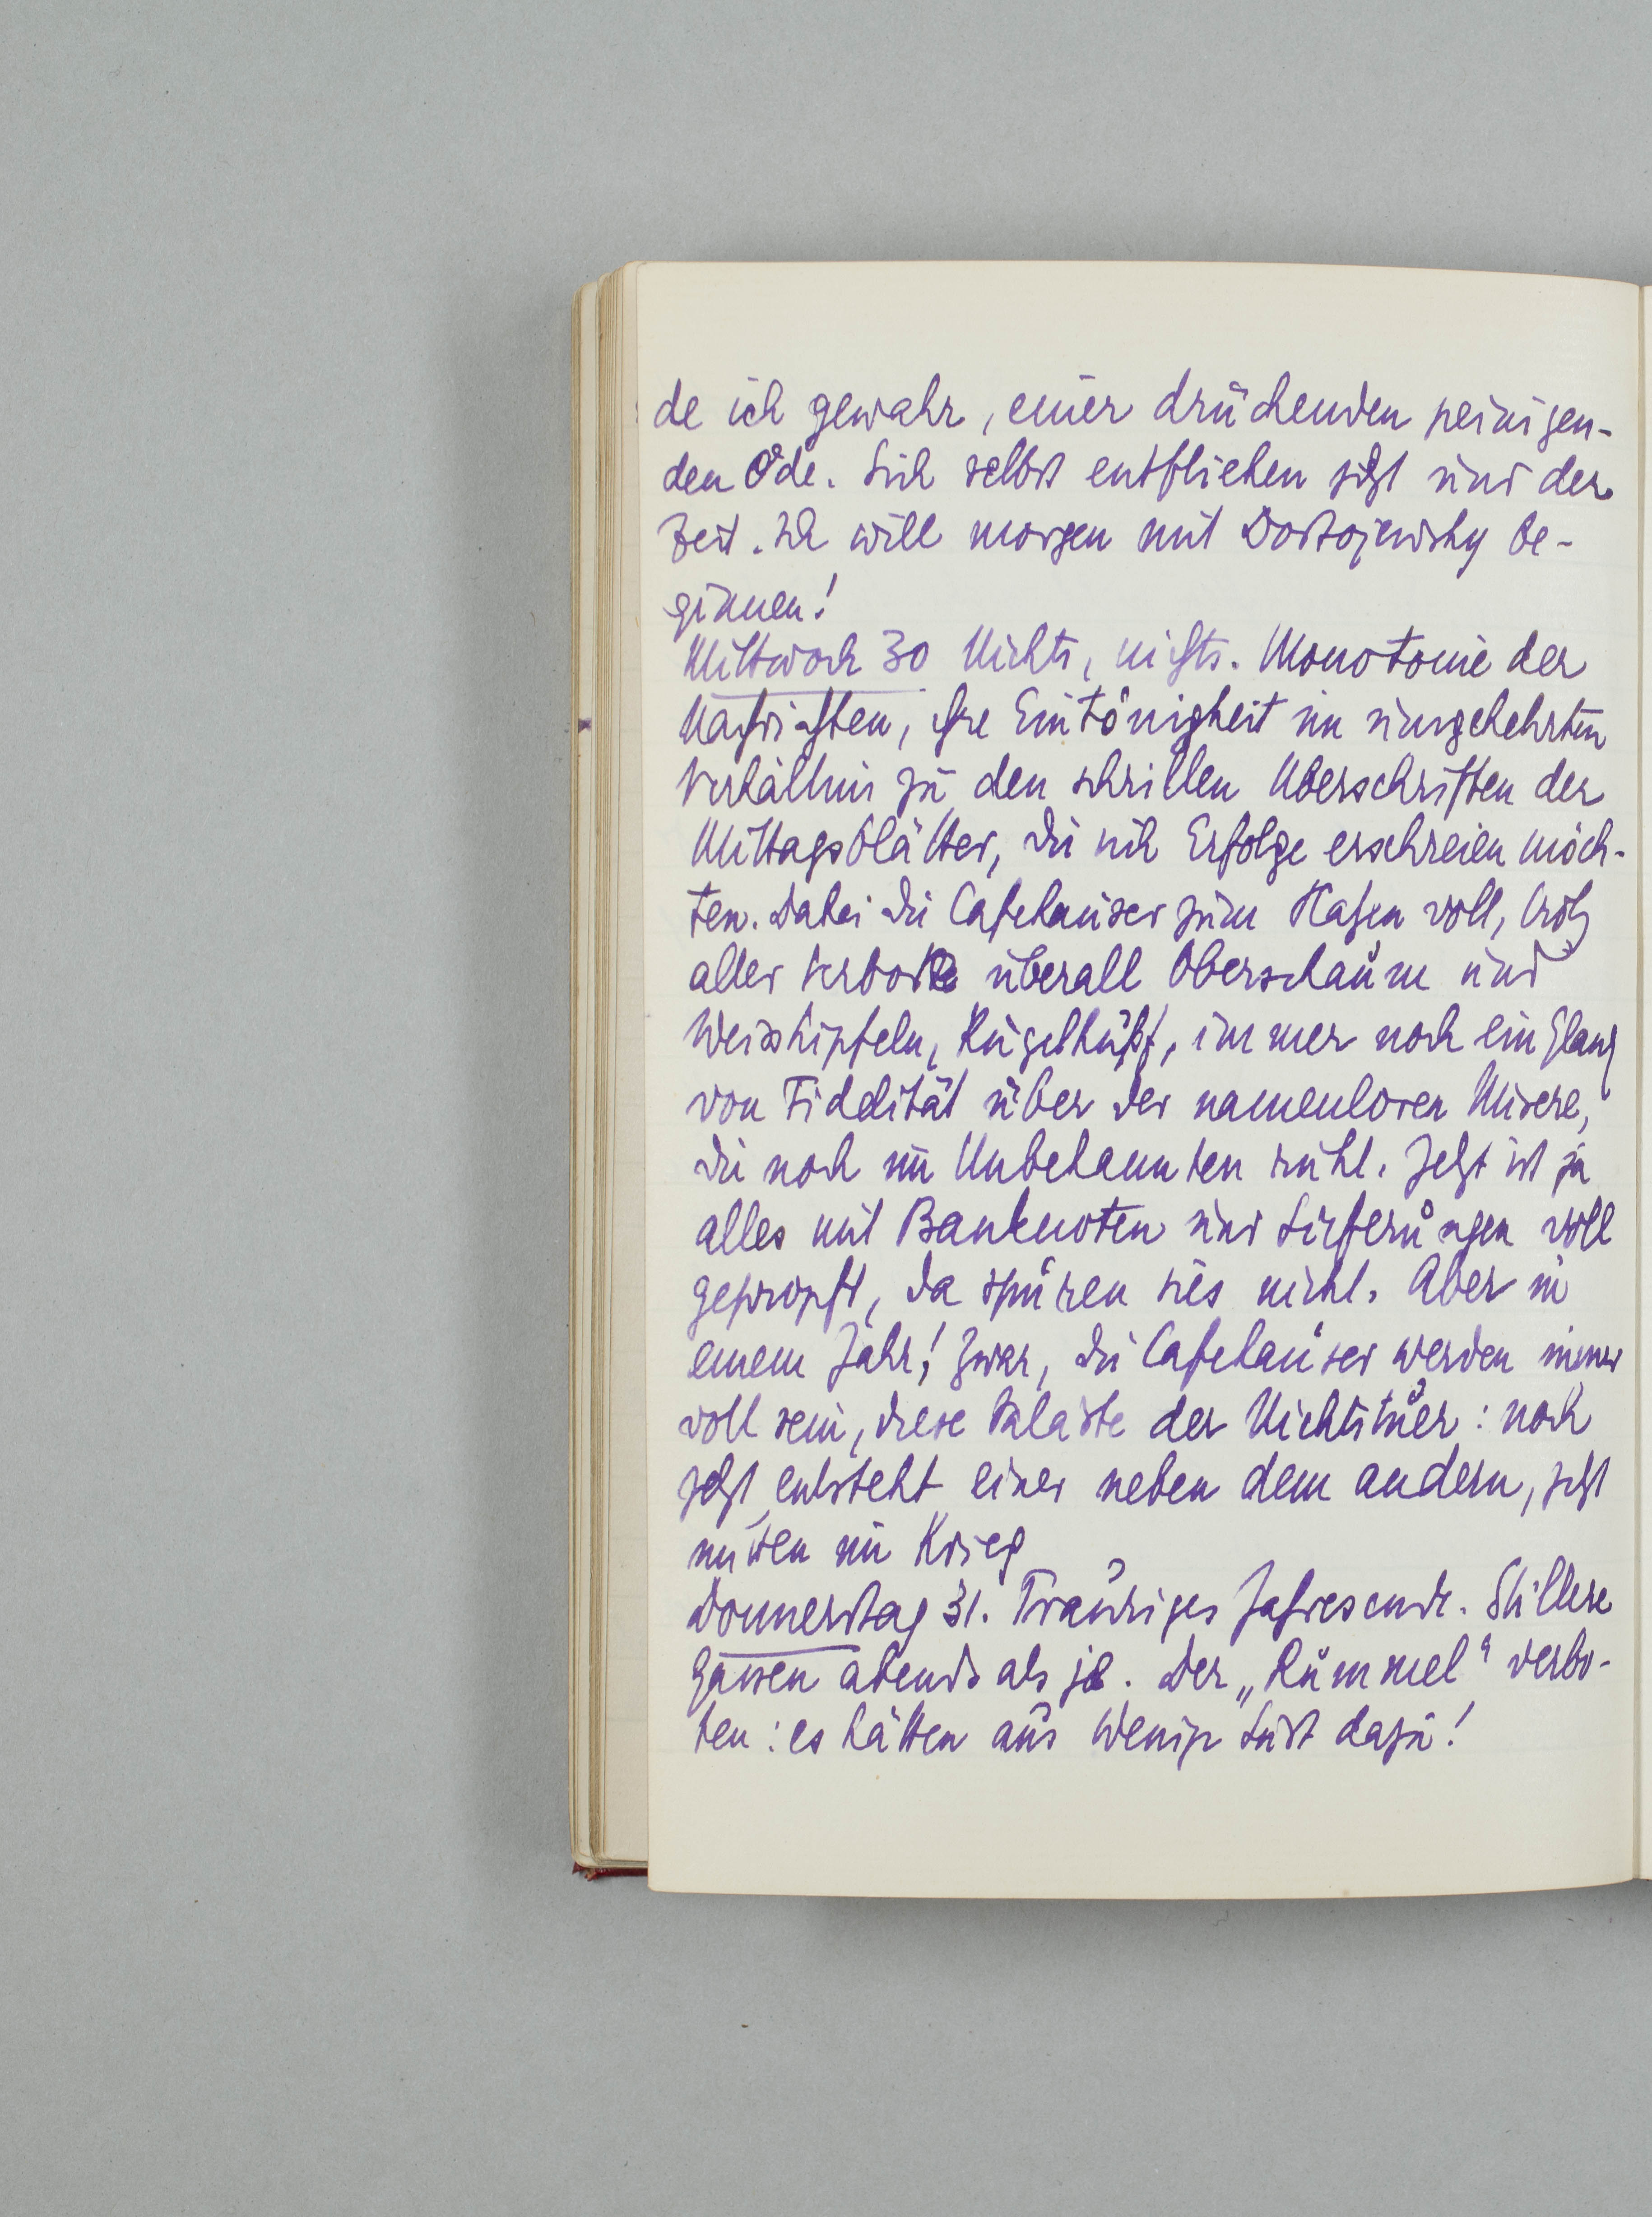 de ich gewahr, einer drückenden peinigen-
den Öde. Sich selbst entfliehen jetzt und der
Zeit. Ich will morgen mit Dostojewsky be-
ginnen!
Mittwoch 30 Nichts, nichts. Monotonie der
Nachrichten, ihre Eintönigkeit im umgekehrten
Verhältnis zu den schrillen Überschriften der
Mittagsblätter, die sich Erfolge erschreien möch-
ten. Dabei die Cafehäuser zum Platzen voll, trotz
aller Verbote überall Oberschaum und
Weisskipfeln, Kugelhupf, immer noch ein Glanz
von Fidelität über der namenlosen Misere,
die noch im Unbekannten ruht. Jetzt ist ja
alles mit Banknoten und Lieferungen voll
gepropft, da spüren sies nicht. Aber in
einem Jahr! Zwar, die Cafehäuser werden immer
voll sein, diese Paläste der Nichtstuer: noch
jetzt entsteht einer neben dem andern, jetzt
mitten im Krieg
Donnerstag 31. Trauriges Jahresende. Stillere
Gassen abends als je. Der „Rummel“ verbo-
ten: es hätten aus wenige Lust dazu!